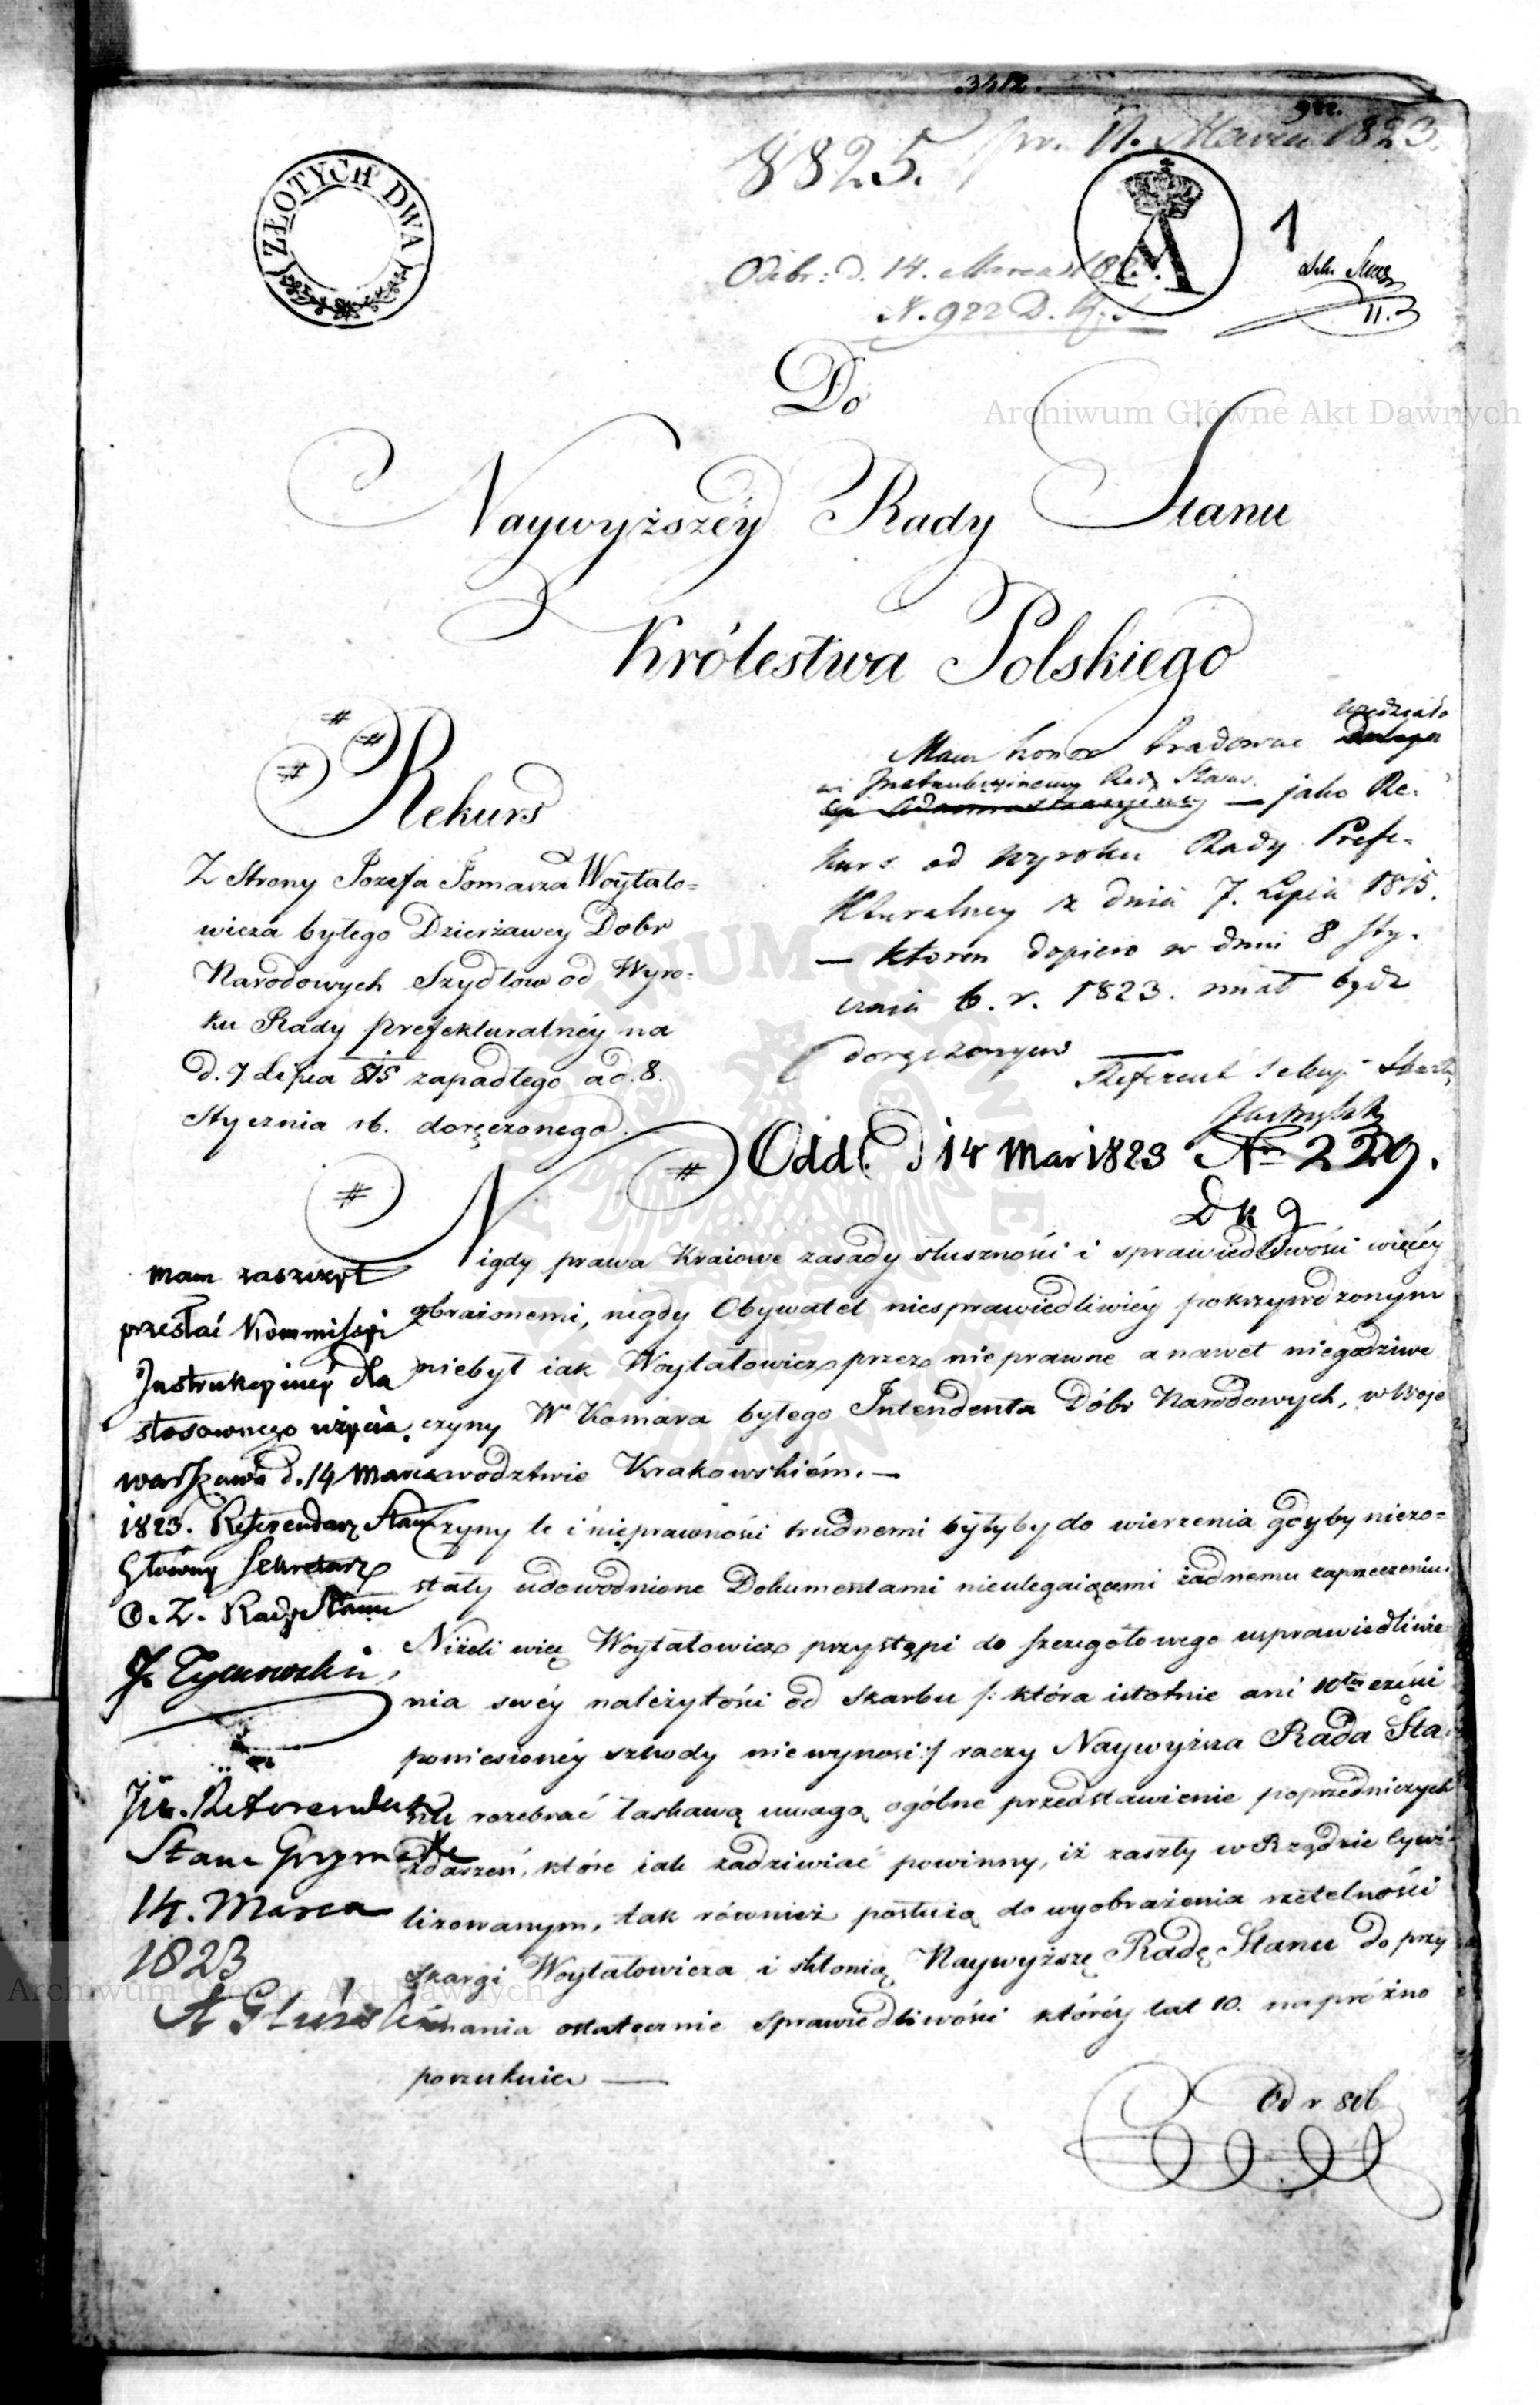 3412.
922.
8825. pr. 11. Marca 1823.
ZŁOTYCH DWA
A
1
Odebr: d. 14. Marca 1823.
N. 922 D.
Do
Naywyższéy Rady Stanu
Królestwa Polskiego
Rekurs
Z Strony Jozefa Tomasza Woytało=
wicza byłego Dzierżawcy Dobr
Narodowych Szydłow od Wyro-
ku Rady prefekturalnéy na
d. 7 Lipca 815 zapadłego a d. 8.
Stycznia rb. doręczonego.
Mam honor tradować
Instrukcyinemu Rady Stanu. — jako Re-
kurs od Wyroku Rady Prefe-
kturalney z dnia 7. Lipca 1815.
— ktoren dopiero w dniu 8 Sty-
cznia b. r. 1823. miał bydź
doręczonym —
Referent
Odd. d 14 Mar 1823 No 229.
Nigdy prawa Kraiowe zasady słuszności i sprawiedliwości więcéy
obrażonemi, nigdy Obywatel niesprawiedliwiéy pokrzywdzonym
niebył iak Woytałowicz przez nieprawne a nawet niegodziwe
czyny Wo Komara byłego Intendenta Dóbr Narodowych, w Woje
wodztwie Krakowskiém. —
Czyny te i nieprawności trudnemi byłyby do wierzenia gdyby niezo=
stały udowodnione Dokumentami nieulegaiącemi żadnemu zaprzeczeniu.
Niżeli więc Woytałowicz przystąpi do szczegółowego usprawiedliwie-
nia swéy należytości od Skarbu /: która istotnie ani 10tey części
poniesionéy szkody niewynosi :/ raczy Naywyższa Rada Sta-
nu rozebrać łaskawą uwagą ogólne przedstawienie poprzedniczych
zdarzeń, które iak zadziwiać powinny, iż zaszły w Rządzie cywi-
lizowanym, tak również posłużą do wyobrażenia rzetelności
skargi Woytałowicza i skłonią Naywyższą Radę Stanu do przy
znania ostatecznie sprawiedliwości któréy lat 10. napróżno
poszukuie —
mam zaszczyt
przesłać Kommissyi
Instrukcyinéy dla
stosownego użycia.
warszawa d. 14 Marca
1823. Referendarz Stanu
Główny Sekretarz
O. Z. Rady Stanu
JW. Referendarz
Stanu Grzymała
14. Marca
1823